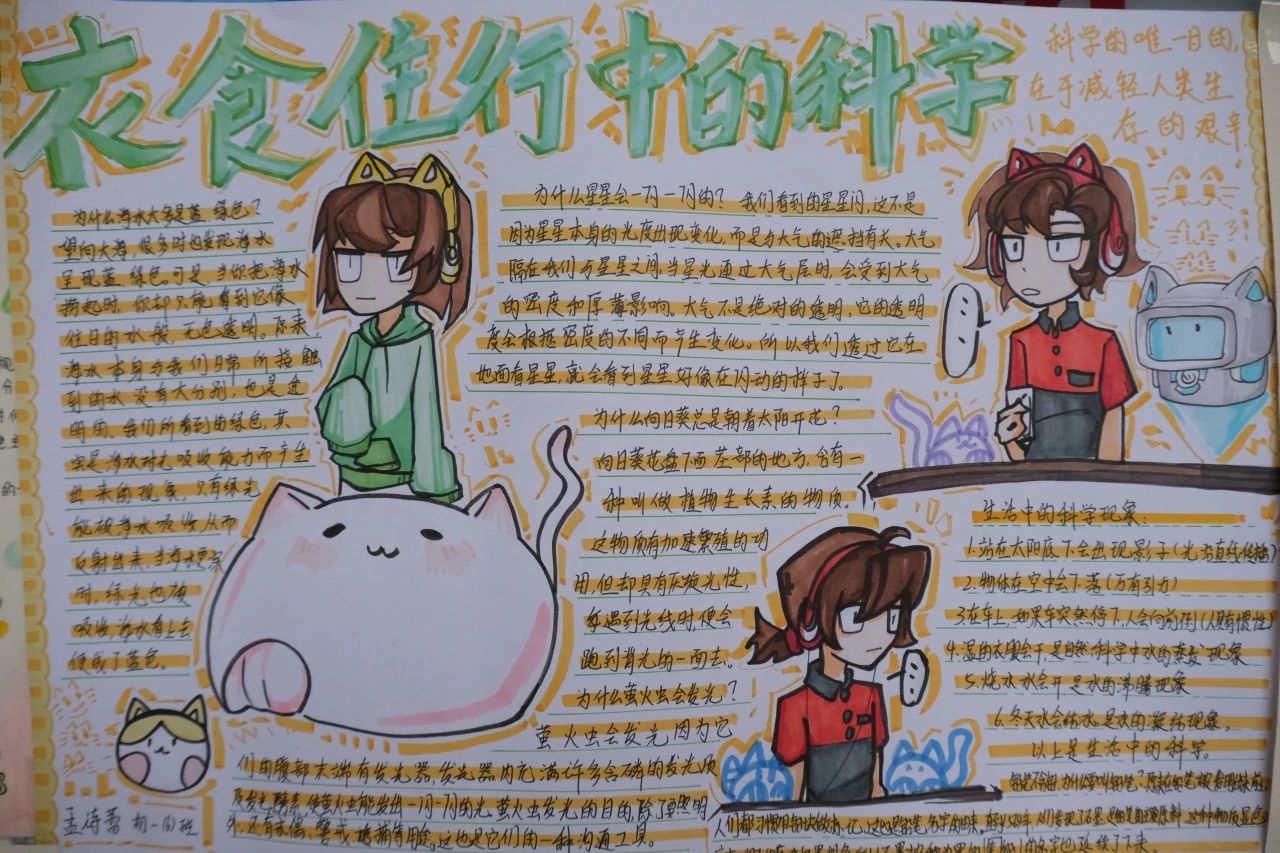 衣食住行中的科学
科学的唯一目的,
在于减轻人类生
存的艰辛
为什么海水大多是蓝、绿色?
望向大海,很多时也发现海水
呈现蓝、绿色。可是,当你把海水
捞起时,你却只能看到它像
往日的水般,无色透明。原来
海水本身与我们日常所接触
到的水没有大分别,也是透
明的。我们所看到的绿色,其
实是海水对光吸收能力而产生
出来的现象。只有绿光
能被海水吸收,从而
反射出来;当海水更深
时,绿光也被
吸收,海水看上去
便成了蓝色。
为什么星星会一闪一闪的? 我们看到的星星闪,这不是
因为星星本身的光度出现变化,而是与大气的遮挡有关。大气
隔在我们与星星之间,当星光通过大气层时,会受到大气
的密度和厚薄影响。大气不是绝对的透明,它的透明
度会根据密度的不同而产生变化。所以我们透过它在
地面看星星,就会看到星星好像在闪动的样子了。
为什么向日葵总是朝着太阳开花?
向日葵花盘下面茎部的地方,含有一
种叫做植物生长素的物质。
这物质有加速繁殖的功
用,但却具有厌光性,
每遇到光线时,便会
跑到背光的一面去。
为什么萤火虫会发光?
萤火虫会发光,因为它
们的腹部末端有发光器,发光器内充满许多含磷的发光质
及发光酵素,使萤火虫能发出一闪一闪的光。萤火虫发光的目的,除了要照明
外,还有求偶、警戒、诱捕等用途。这也是它们的一种沟通工具。
生活中的科学现象:
1.站在太阳底下会出现影子(光沿直线传播)
2.物体在空中会下落(万有引力)
3.在车上,如果车突然停下,人会向前倒(人具有惯性)
4.湿的衣服会干是自然科学中水的蒸发现象
5.烧水水会干是水的沸腾现象
6.冬天水会结冰是水的凝结现象。
以上是生活中的科学。
孟诗蕾 初一(6)班